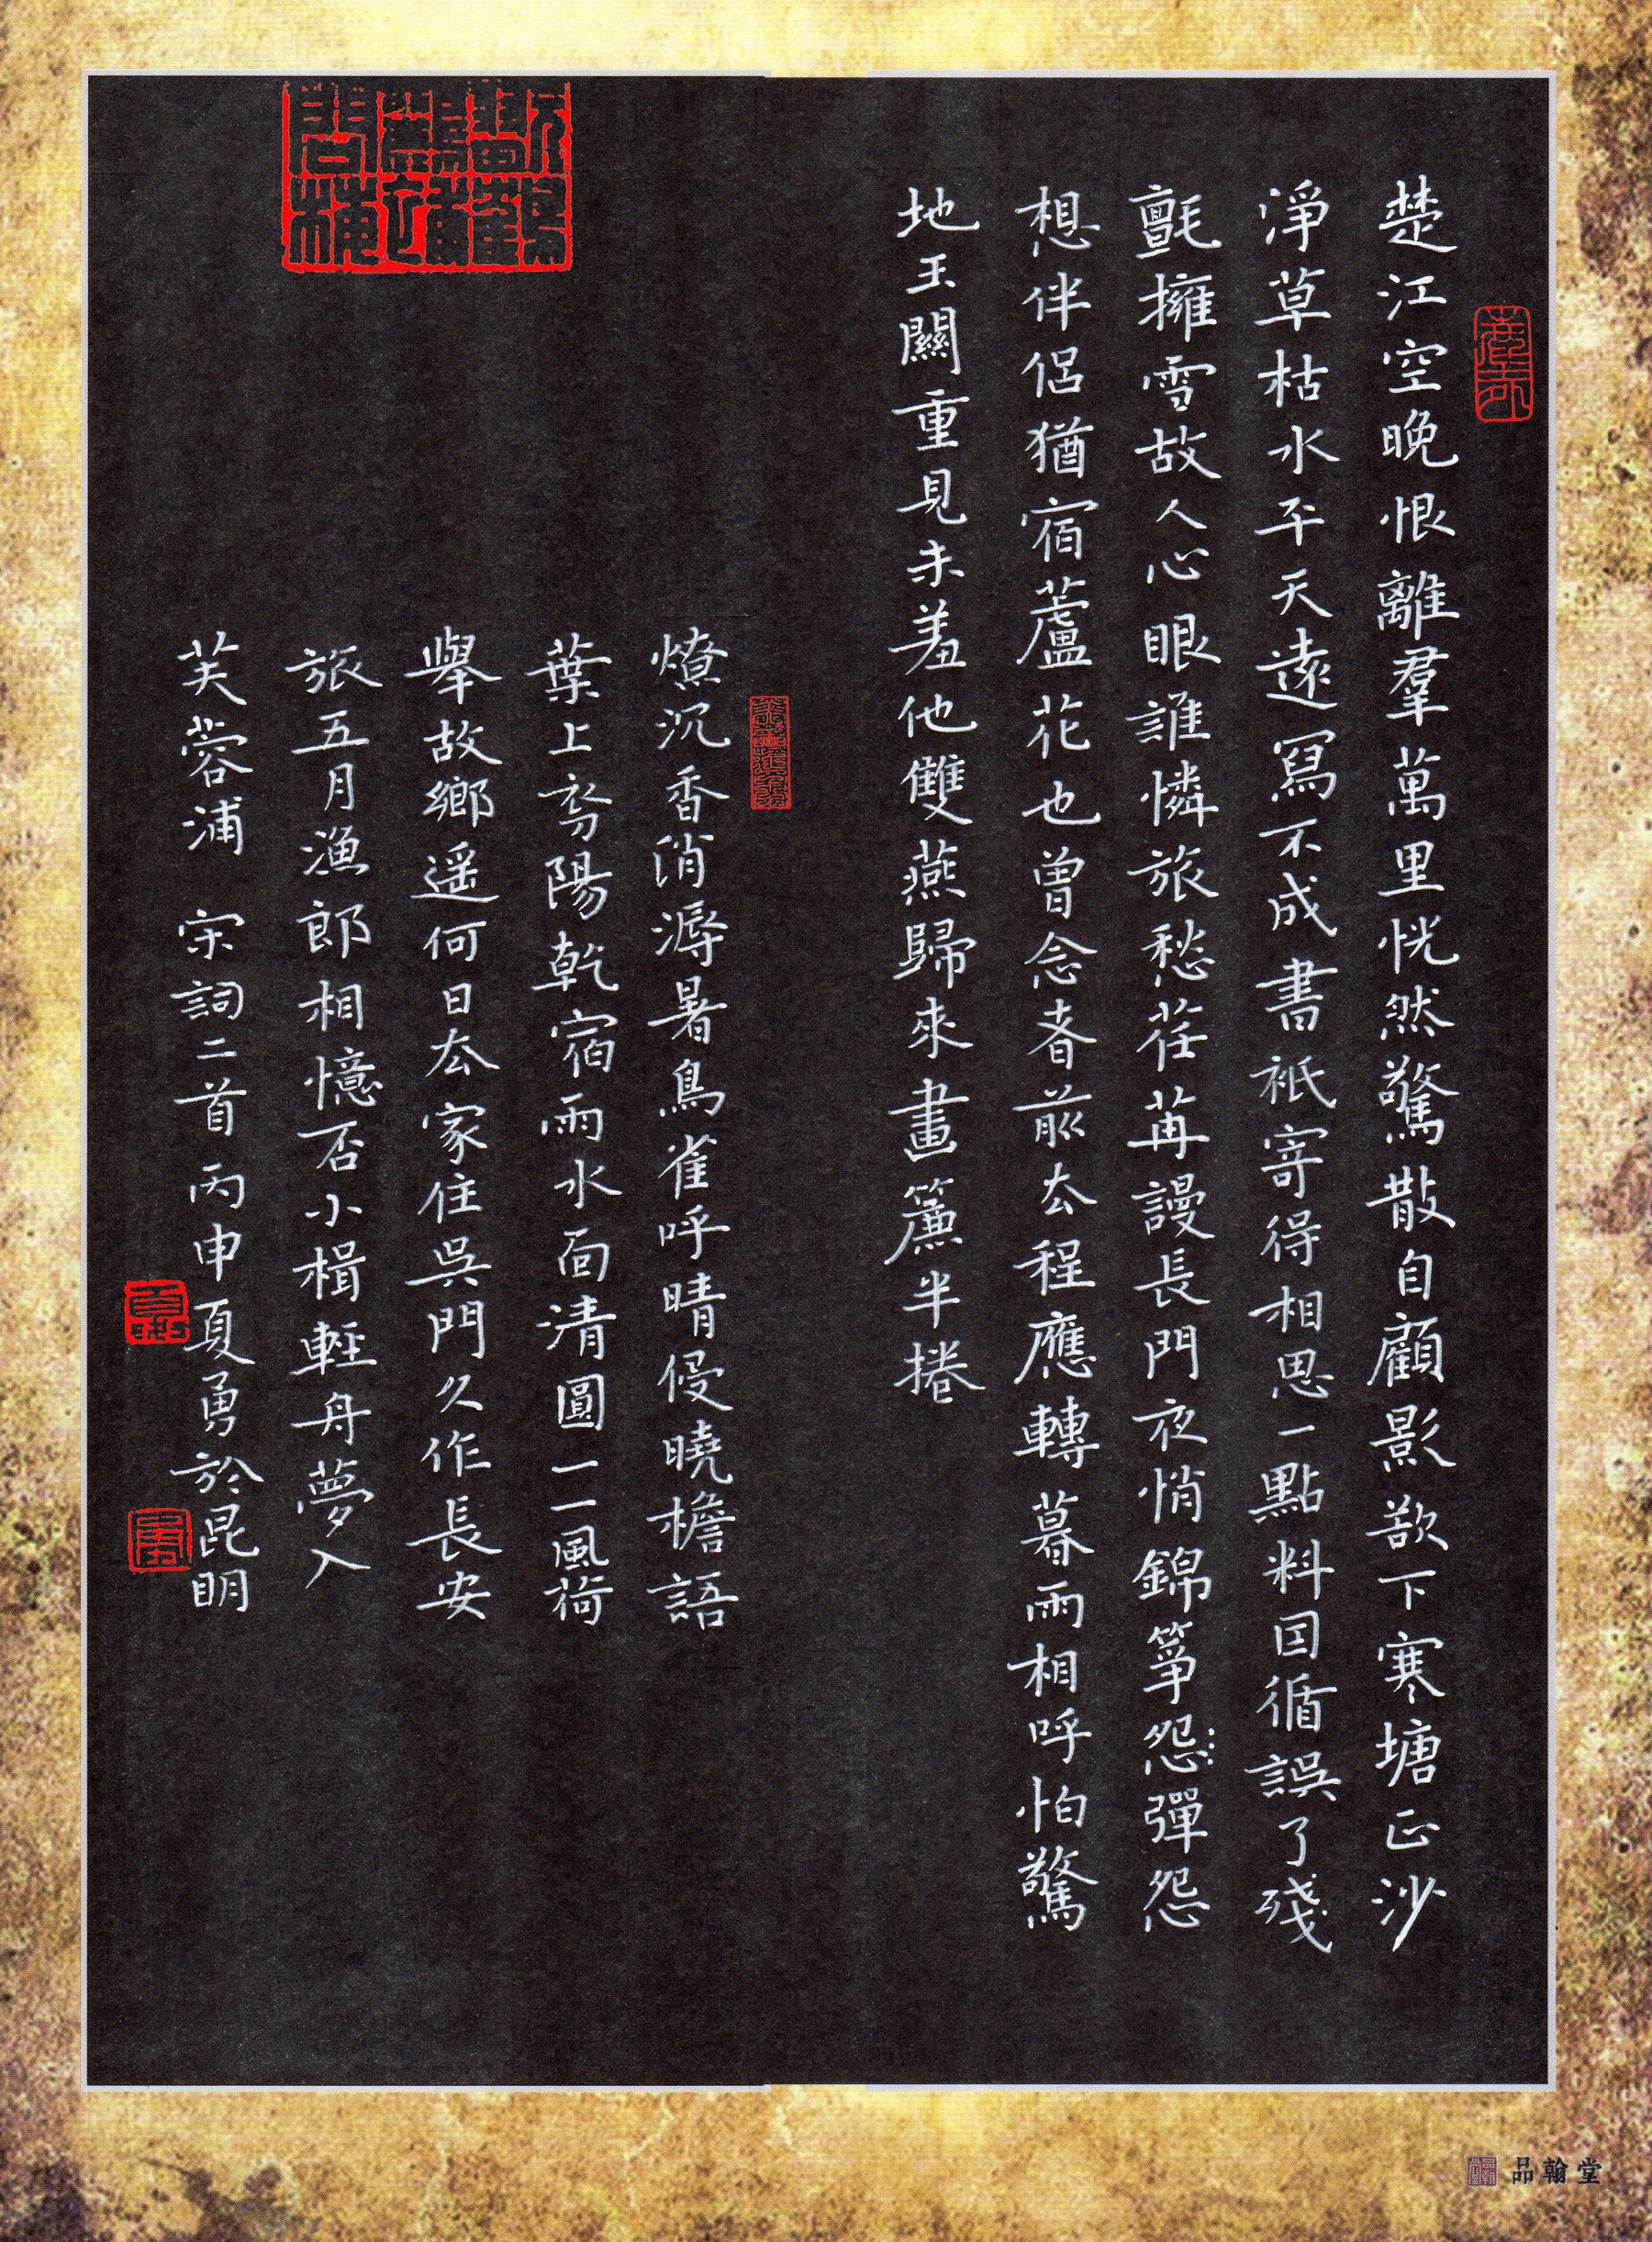 楚江空晚恨離羣萬里恍然驚散自顧影欲下寒塘正沙
淨草枯水平天遠寫不成書衹寄得相思一點料因循誤了殘
氈擁雪故人心眼誰憐旅愁荏苒謾長門夜悄錦箏怨彈怨
想伴侶猶宿蘆花也曾念春前去程應轉暮雨相呼怕驚
地玉關重見未羞他雙燕歸來畫簾半捲
燎沉香消溽暑鳥雀呼晴侵曉檐語
葉上初陽乾宿雨水面清圓一一風荷
舉故鄉遥何日去家住吳門久作長安
旅五月漁郎相憶否小楫輕舟夢入
芙蓉浦 宋詞二首 丙申夏勇於昆明
品翰堂